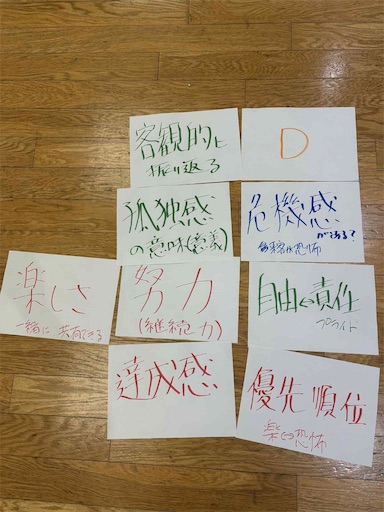 客観的に
振り返る
D
孤独感
の意味(意義)
危機感
がある?
恐怖
楽しさ
一緒に 共有できる
努力
(継続力)
自由と責任
プライド
達成感
優先順位
楽しさ 恐怖